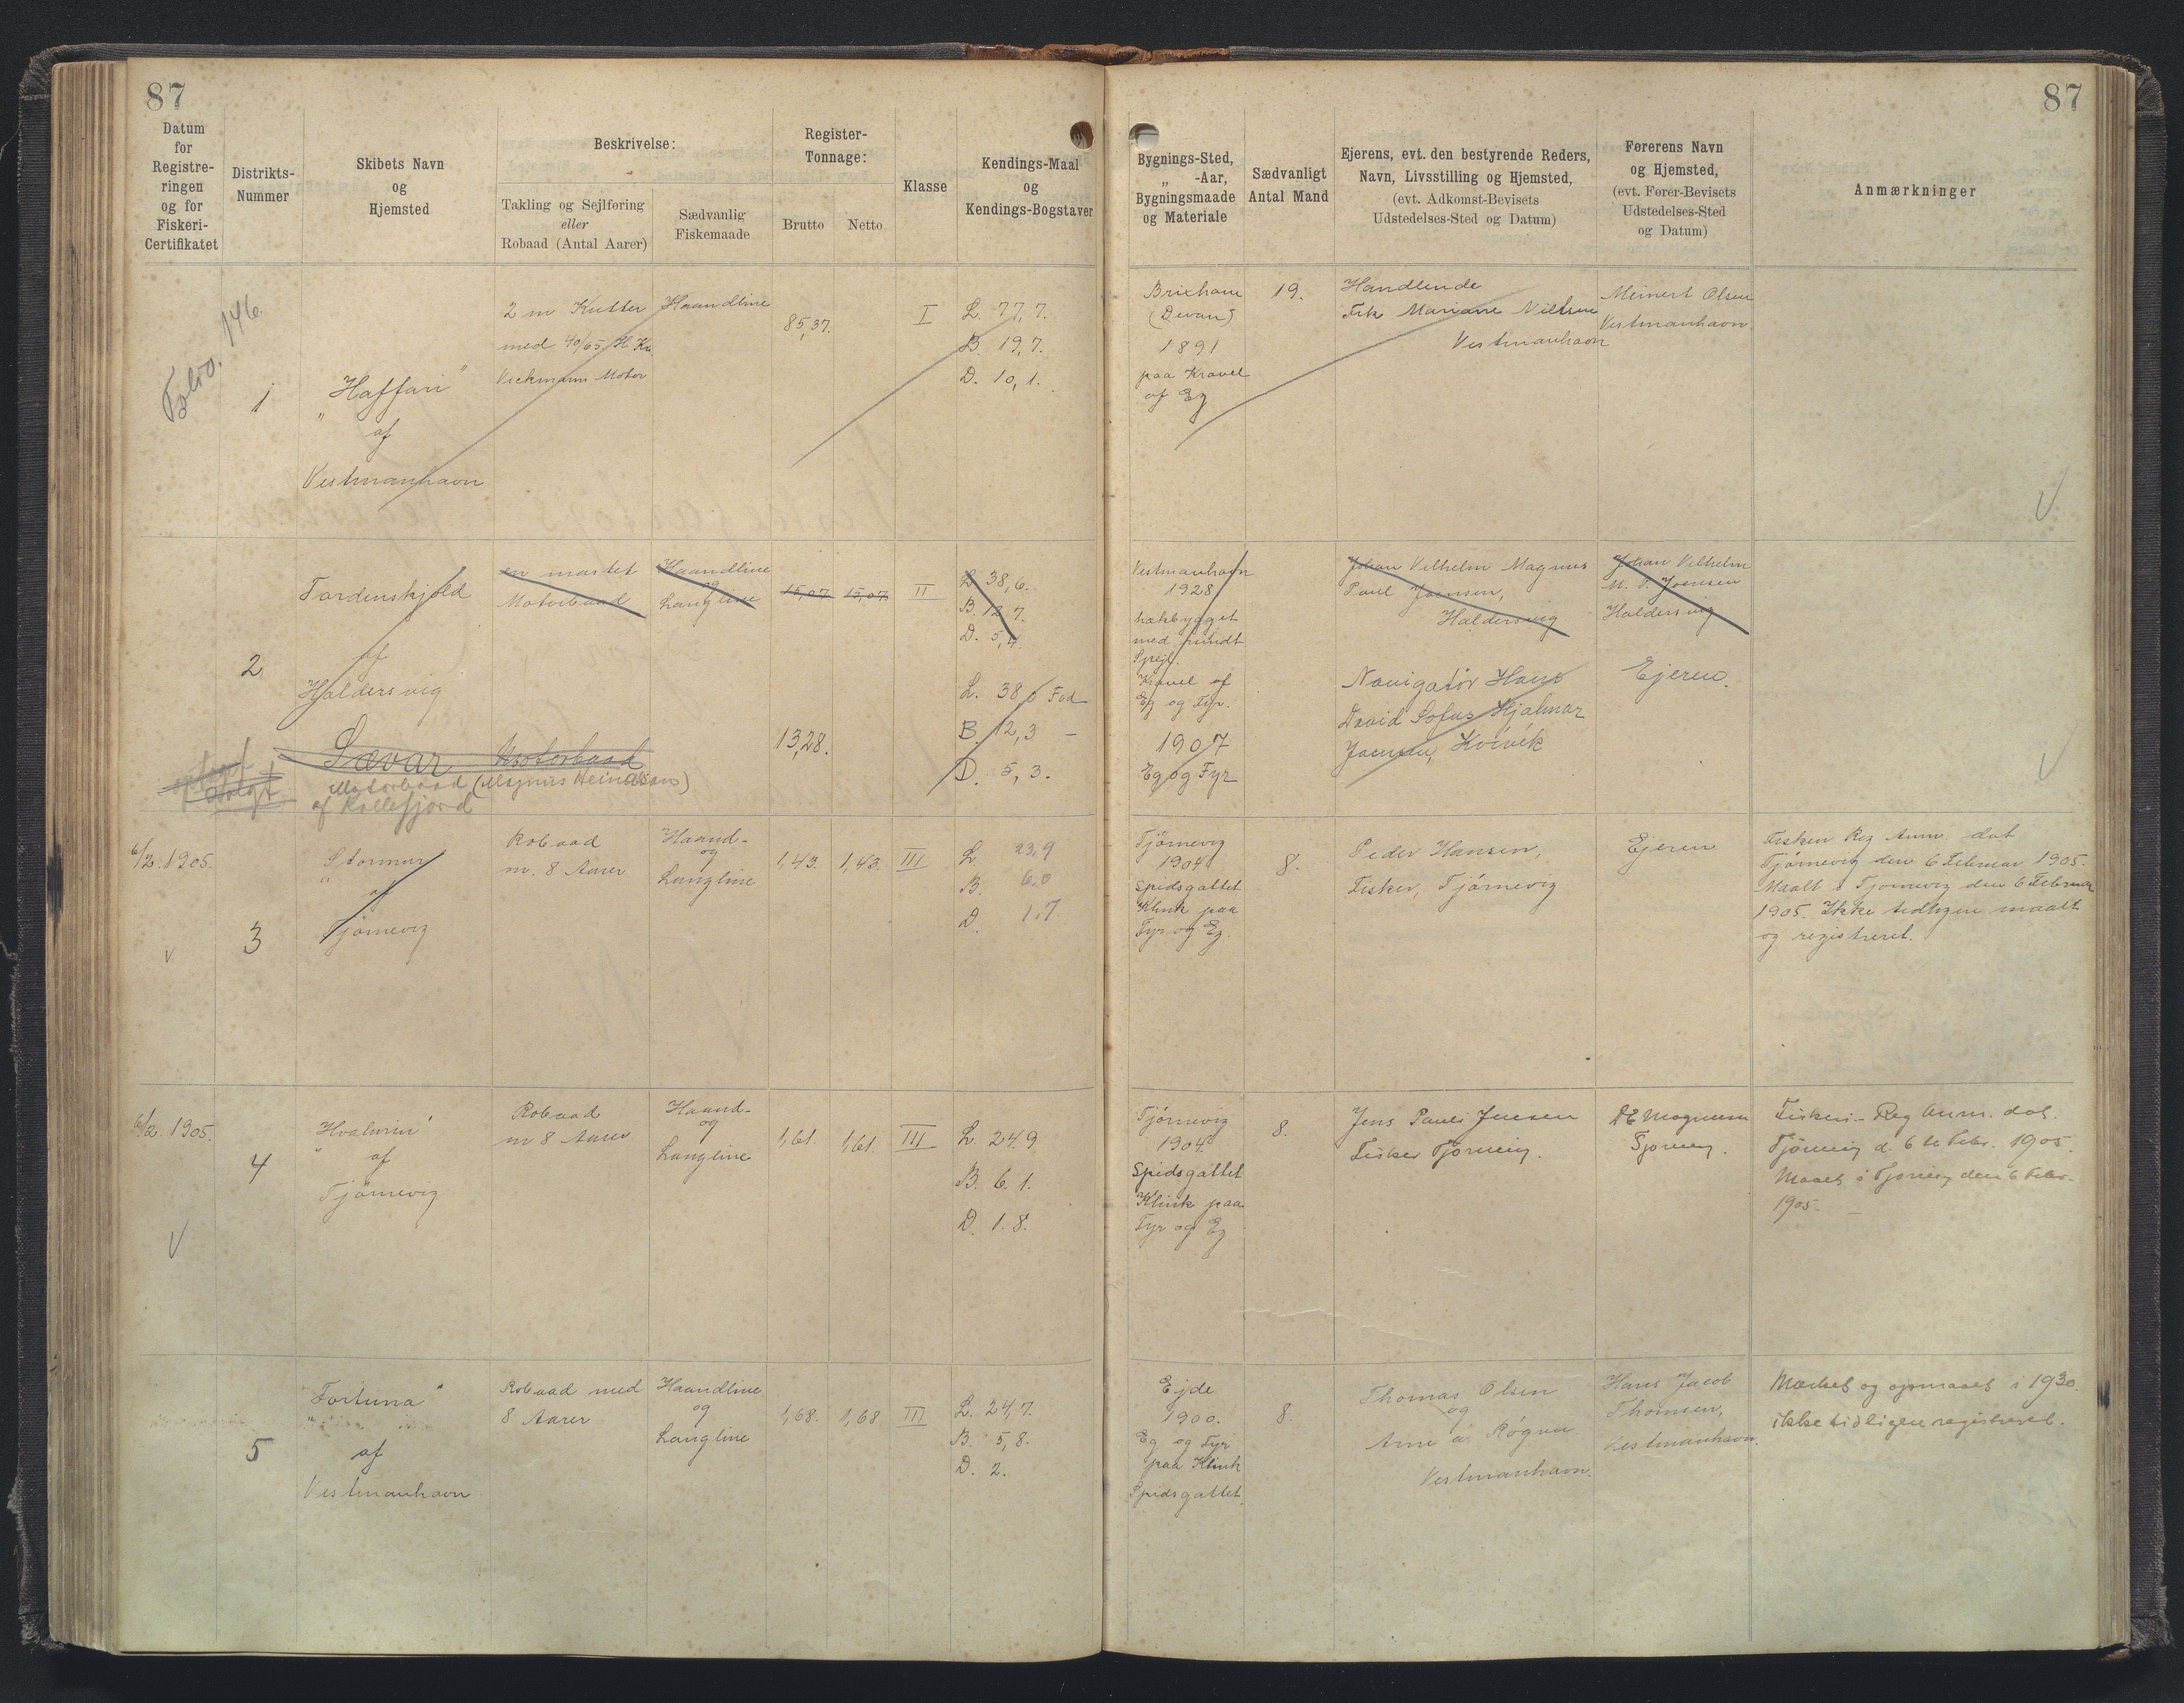 87
87
Datum
for
Registre-
ringen
og for
Fiskeri-
Certifikatet
Distrikts-
Nummer
Skibets Navn
og
Hjemsted
Beskrivelse:
Takling og Sejlføring
eller
Robaad (Antal Aarer)
Sædvanlig
Fiskemaade
Register-
Tonnage:
Brutto
Netto
Klasse
Kendings-Maal
og
Kendings-Bogstaver
Bygnings-Sted,
„ -Aar,
Bygningsmaade
og Materiale
Sædvanligt
Antal Mand
Ejerens, evt. den bestyrende Reders,
Navn, Livsstilling og Hjemsted,
(evt. Adkomst-Bevisets
Udstedelses-Sted og Datum)
Førerens Navn
og Hjemsted,
(evt. Fører-Bevisets
Udstedelses-Sted
og Datum)
Anmærkninger
Folio. 146.
1
„Haffari"
af
Vestmanhavn
2 m Kutter
med 40/65 H. Kr.
Vickmann Motor
Haandline
85,37.
I
L. 77,7.
B. 19,7.
D. 10,1.
Brixham
(Devan)
1891
paa Kravel
af Eg
19.
Handlende
Frk Mariane Nielsen
Vestmanhavn
Meinert Olsen
Vestmanhavn.
2
Tordenskjold
af
Haldersvig
en mastet
Motorbaad
Haandline
og
Langline
15,07
15,07
II
L. 38,6.
B. 12,7.
D. 5,4.
Vestmanhavn
1928
hækbygget
med rundt
Spejl.
Kravel af
Eg og Fyr.
Johan Vilhelm Magnus
Paul Joensen,
Haldersvig
Johan Vilhelm
M. P. Joensen
Haldersvig
Sævar Motorbaad
Motorbaad (Magnus Heinason)
af Kollefjord
13,28.
L. 38,6 Fod
B. 12,3 –
D. 5,3.
1907
Eg og Fyr
Navigatör Hans
David Sofus Hjalmar
Joensen, Kvívík
Ejeren.
6/2. 1905.
3
„Stormur
af
Tjørnevig
Robaad
m. 8 Aarer
Haand-
og
Langline
1,43.
1,43.
III
L. 23,9
B. 6,0
D. 1,7
Tjørnevig
1904
Spidsgattet
Klink paa
Fyr og Eg.
8.
Peder Hansen,
Fisker, Tjørnevig
Ejeren
Fiskeri Reg Anm. dat
Tjørnevig den 6 Februar 1905.
Maalt i Tjørnevig den 6 Februar
1905. Ikke tidligere maalt
og registreret.
6/2. 1905.
4
„Hvalurin"
af
Tjørnevig
Robaad
m 8 Aarer
Haand-
og
Langline
1,61.
1,61.
III
L. 24.9
B. 6.1.
D. 1.8.
Tjørnevig
1904.
Spidsgattet
Klink paa
Fyr og Eg
8.
Jens Pauli Jensen
Fisker Tjørnevig.
Magnussen
Tjørnevig.
Fiskeri-Reg Anm. dat.
Tjørnevig d. 6te Febr. 1905.
Maalt i Tjørnevig den 6 Febr.
1905.
5
„Fortuna"
af
Vestmanhavn
Robaad med
8 Aarer
Haandline
og
Langline
1,68.
1,68
III
L. 24,7.
B. 5,8.
D. 2.
Ejde
1900.
Eg og Fyr
paa Klink
Spidsgattet.
8.
Thomas Olsen
og
Arne á Rógvu
Vestmanhavn.
Hans Jacob
Thomsen,
Vestmanhavn.
Mærket og opmaalt i 1930.
ikke tidligere registreret.